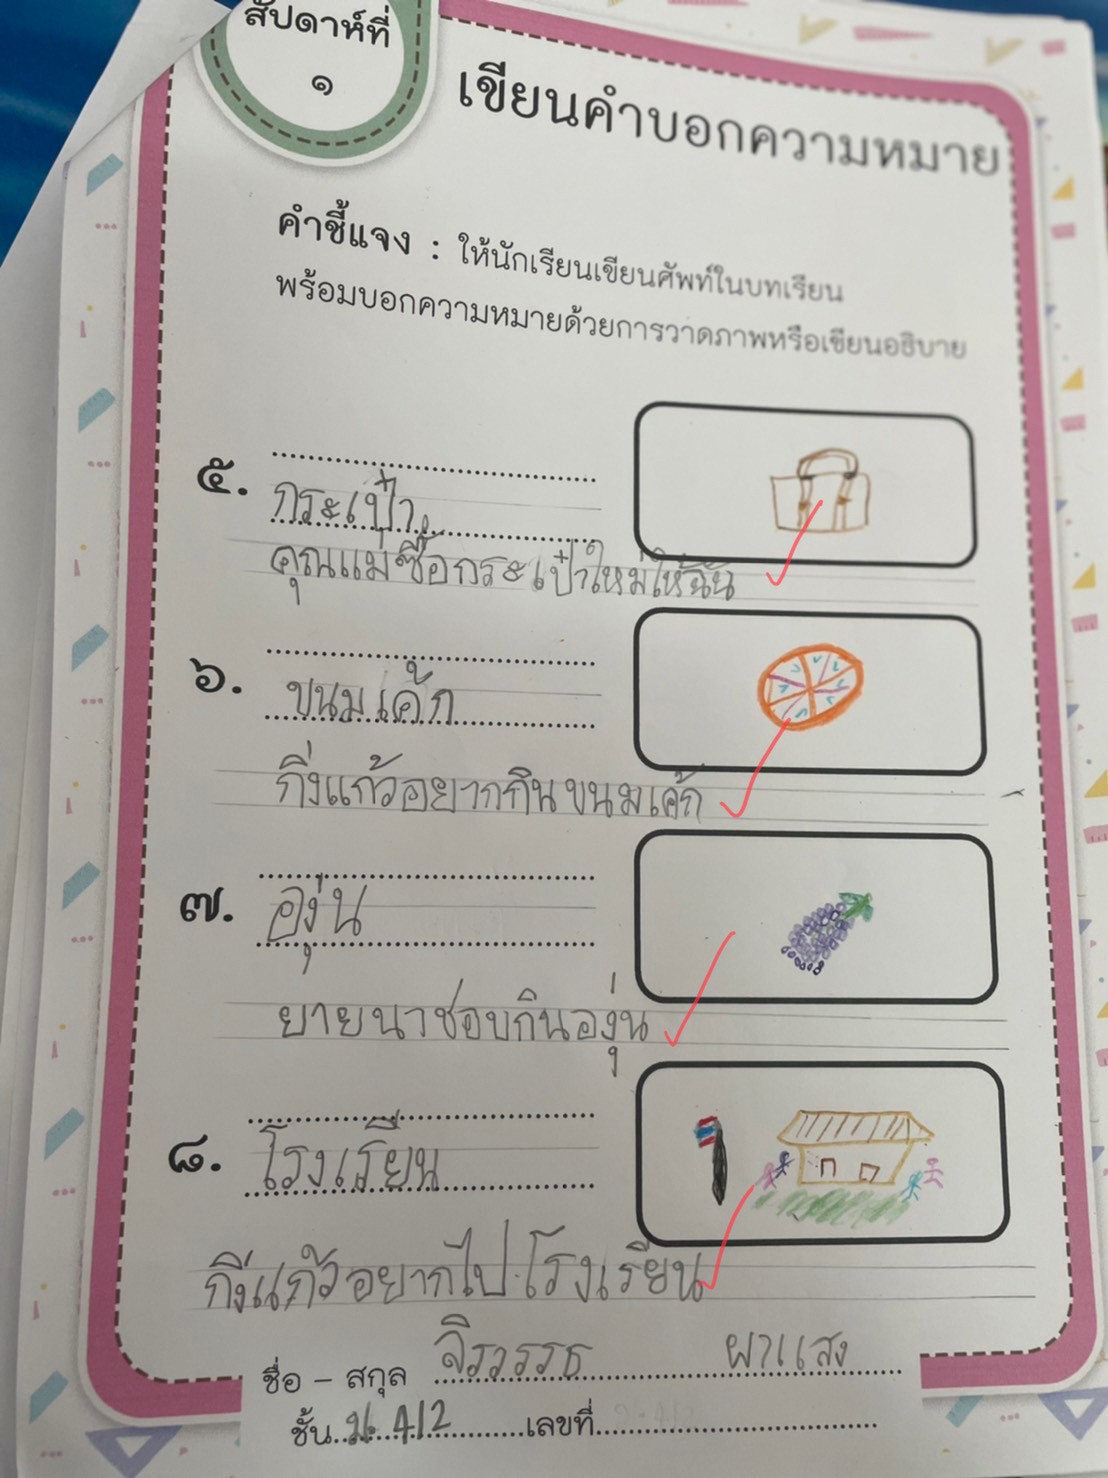 สัปดาห์ที่
๑
เขียนคำบอกความหมาย
คำชี้แจง : ให้นักเรียนเขียนศัพท์ในบทเรียน
พร้อมบอกความหมายด้วยการวาดภาพหรือเขียนอธิบาย
๕. กระเป๋า
คุณแม่ซื้อกระเป๋าใหม่ให้ฉัน
๖. ขนมเค้ก
กิ่งแก้วอยากกินขนมเค้ก
๗. องุ่น
ยายนาชอบกินองุ่น
๘. โรงเรียน
กิ่งแก้วอยากไปโรงเรียน
ชื่อ - สกุล จิรวรรธ ผาแสง
ชั้น ม. 4/2 เลขที่